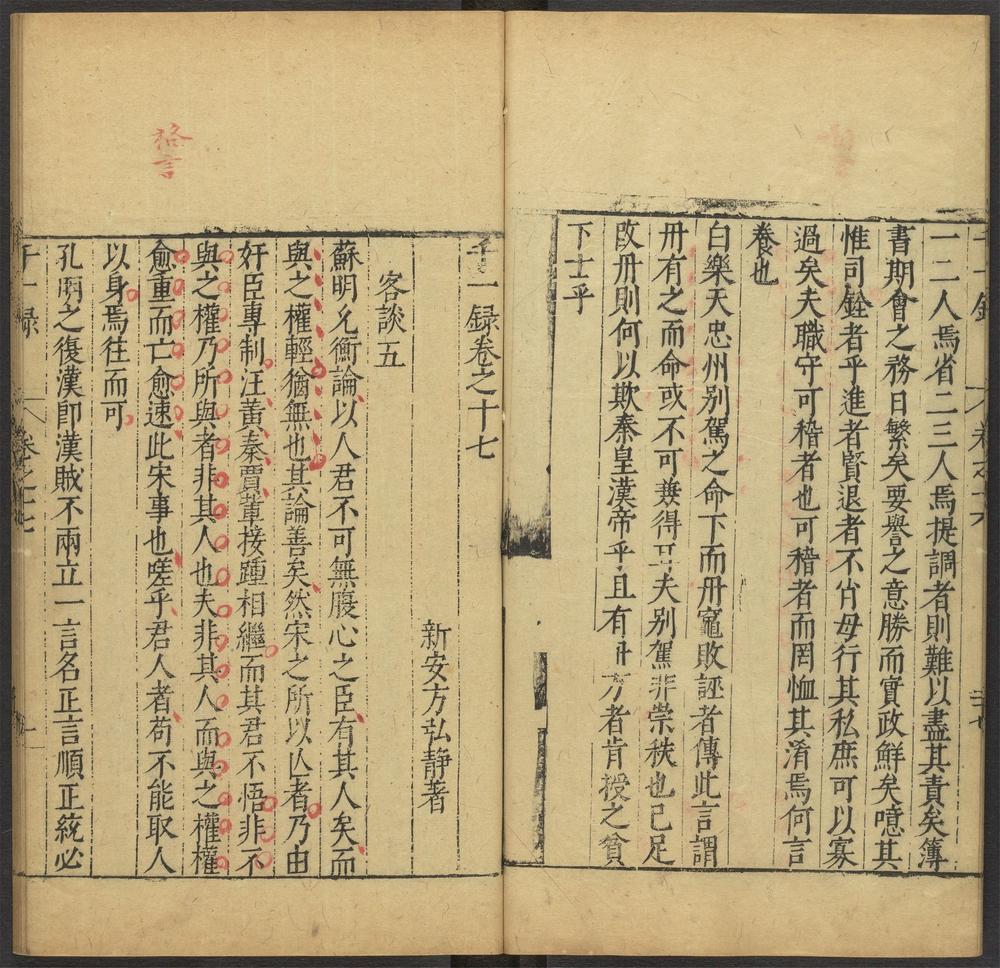 一二人焉省二三人焉提調者則難以盡其責矣簿
書期會之務日繁矣要譽之意勝而實政鮮矣噫其
惟司銓者乎進者賢退者不肖毋行其私庶可以寡
過矣夫職守可稽者也可稽者而罔恤其淆焉何言
養也
白樂天忠州别駕之命下而丹竈敗誣者傳此言謂
丹有之而命或不可兼得耳夫别駕非崇秩也已足
敗丹則何以欺秦皇漢帝乎且有丹方者肯授之貧
下士乎
千一録卷之十七
新安方弘静著
客談五
蘇明允衡論以人君不可無腹心之臣有其人矣而
與之權輕猶無也其論善矣然宋之所以亾者乃由
奸臣專制汪黄秦賈軰接踵相繼而其君不悟非不
與之權乃所與者非其人也夫非其人而與之權權
愈重而亡愈速此宋事也嗟乎君人者苟不能取人
以身焉往而可
孔明之復漢卽漢賊不兩立一言名正言順正統必
千一録
卷之十七
一
格言